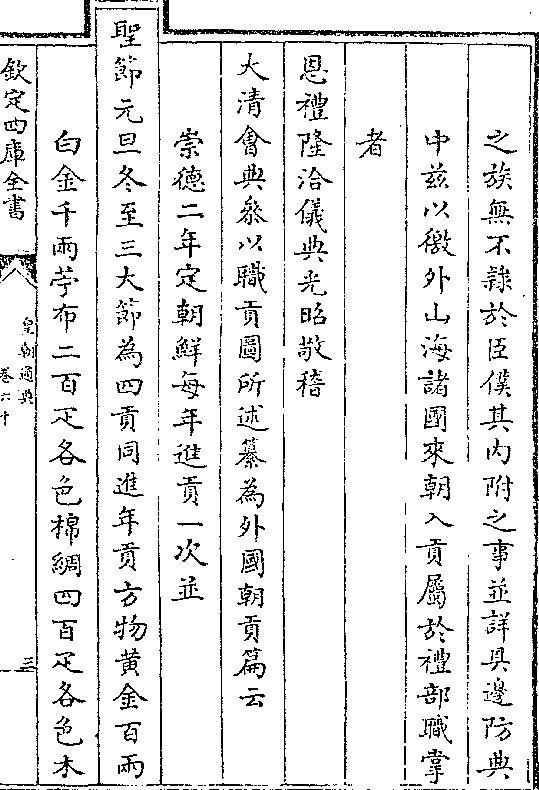 之族無不隷於臣僕其内附之事並詳具邊防典
中兹以徼外山海諸國來朝入貢屬於禮部職掌
者
恩禮隆洽儀典光昭敬稽
大清會典叅以職貢圖所述纂為外國朝貢篇云
崇德二年定朝鮮每年進貢一次並
聖節元旦冬至三大節為四貢同進年貢方物黄金百兩
白金千兩苧布二百疋各色棉綢四百疋各色木
欽定四庫全書
皇朝通典
卷六十
三